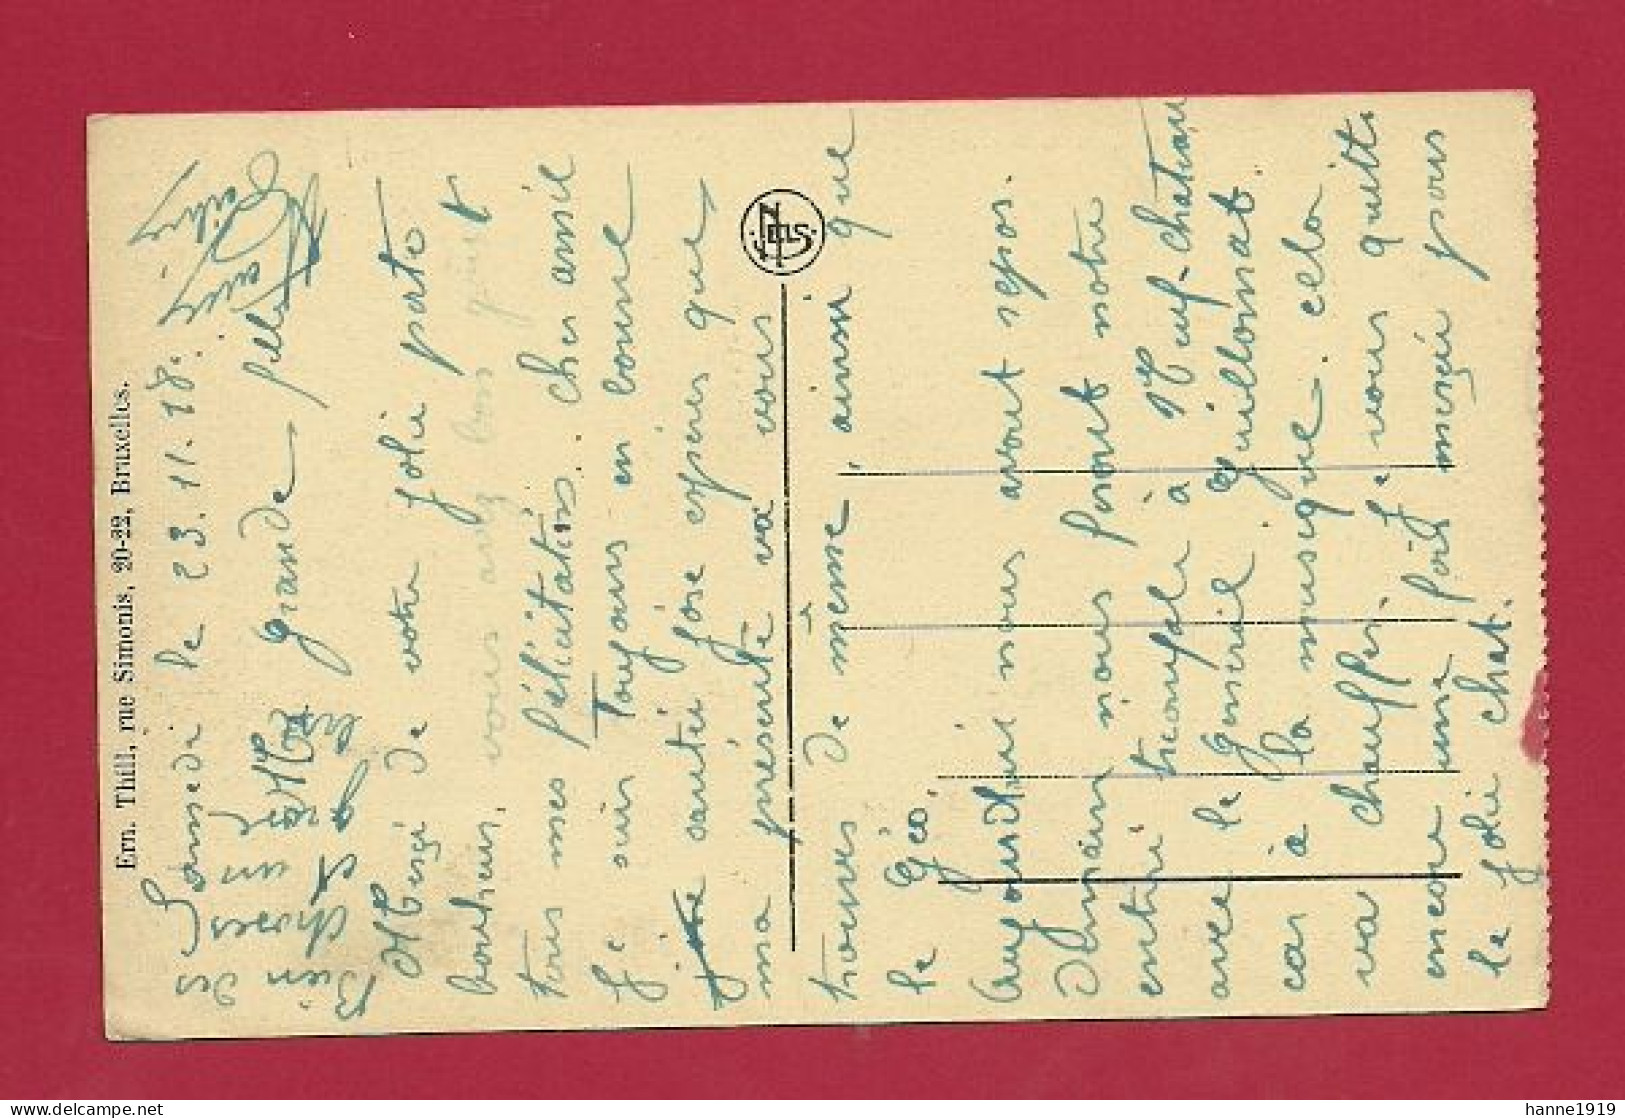 Ern. Thill, rue Simonis, 20-22, Bruxelles.
Samedi le 23.11.18.
grande fille
Merci de votre jolie porte
bonheur, vous avez bon gout
tous mes félicitations. cher amie
Je suis Toujours en bonne
santé j'ose esperes que
ma présente va vous
trouves de même, ainsi que
le Géo.
Aujourd'hui nous avont repos.
Demain nous feront notre
entrée triomfale à Neuf-chateau
avec le général Guillaumat
car à la musique. cela
va chauffer. Je vous quitte
encore une fois merçi pour
le jolie chat.
Bien des
choses
et un gros
NELS
hanne1919